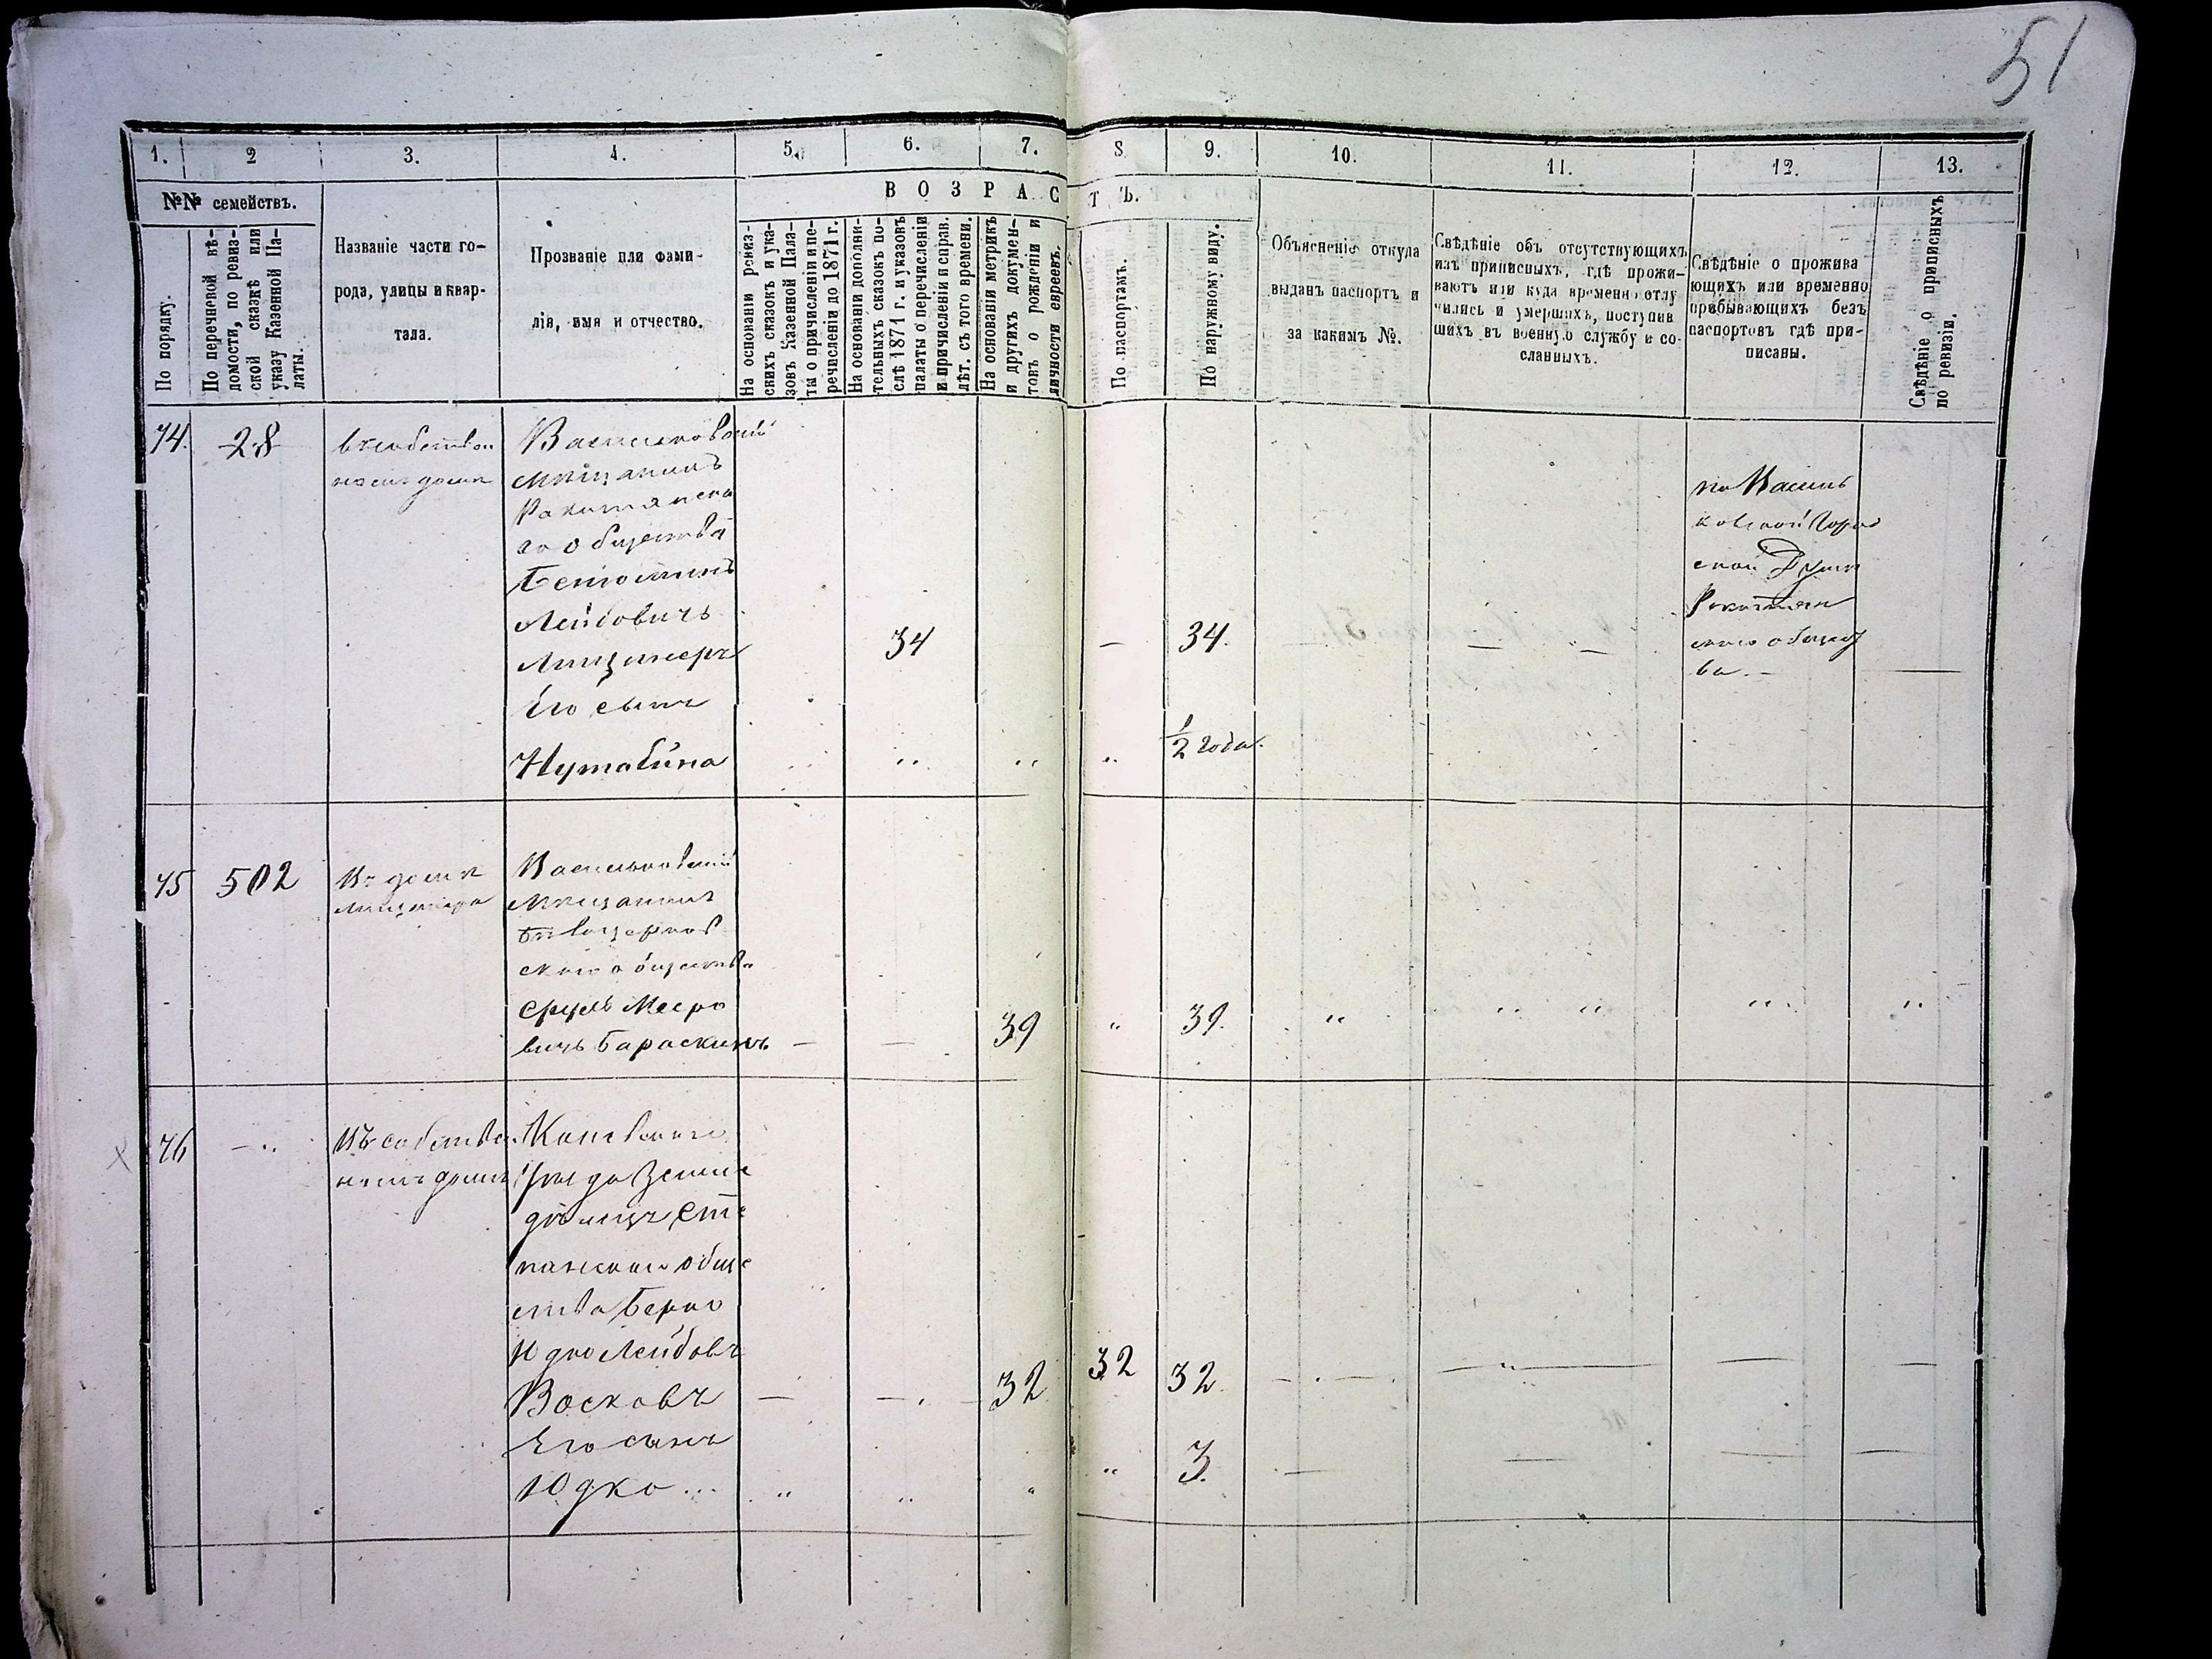 51
1. 2 3. 4. 5. 6. 7. 8 9. 10. 11. 12. 13.
№№ семействъ.
В О З Р А С Т Ъ.
По порядку.
По перечневой вѣ-
домости, по ревиз-
ской сказкѣ или
указу Казенной Па-
латы.
Названіе части го-
рода, улицы и квар-
тала.
Прозваніе или фами-
лія, имя и отчество.
На основаніи ревиз-
скихъ сказокъ и ука-
зовъ Казенной Пала-
ты о причисленіи пе-
речисленіи до 1871 г.
На основаніи дополни-
тельныхъ сказокъ по-
слѣ 1871 г. и указовъ
палаты о перечисленіи
и причисленіи и справ.
лѣт. съ того времени.
На основаніи метрикъ
и другихъ докумен-
товъ о рожденіи и
личности евреевъ.
По паспортамъ.
По наружному виду.
Объясненіе откуда
выданъ паспортъ и
за какимъ №.
Свѣдѣніе объ отсутствующихъ
изъ приписныхъ, гдѣ прожи-
ваютъ или куда временно отлу
чились и умершихъ, поступив
шихъ въ военную службу и со-
сланныхъ.
Свѣдѣніе о прожива
ющихъ или временно
прибывающихъ безъ
паспортовъ гдѣ при-
писаны.
Свѣдѣніе о приписныхъ
по ревизіи.
74. 28
въ собствен
номъ домѣ
Васильковскій
мѣщанинъ
Ракитянска
го общества
Беніоминъ
Лейбовичъ
Лищинеръ
34 — 34. — —
по Василь
ковской Город
ской Думѣ
Ракитян
скаго общест
ва. —
Его сынъ
Нута Бина
1/2 года.
75 502
Въ домѣ
Лищинера
Васильковскій
мѣщанинъ
Бѣлоцерков
скаго общества
Сруль Мееро
вичъ Бараскинъ — — 39 " 39. " " " " "
76 — "
Въ собствен
номъ домѣ
Кіевскаго
уѣзда Земле
дѣлецъ Сте
панскаго обще
ства Берко
Юдко Лейбовъ
Восковъ — — 32 32 32.
Его сынъ
Юдко ... " " " " 3.